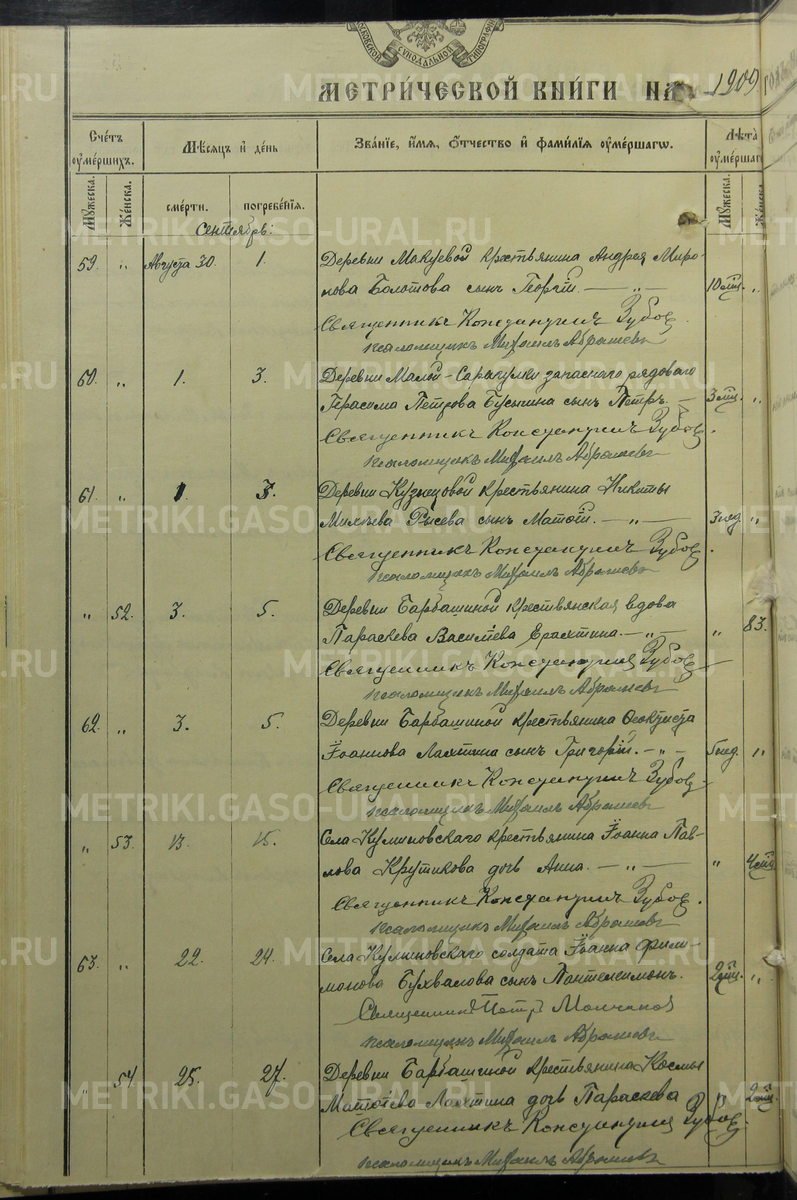 МОСКОВСКОЙ СѴНОДАЛЬНОЙ ТИПОГРАФІИ
МЕТРИ́ЧЕСКОЙ КНИ́ГИ НА 1909
Сче́тъ ѹме́ршихъ.
Мѣ́сяцъ и҆ де́нь
Зва́нїе, и҆́мя, ѻ҆́тчество и҆ фами́лїя ѹме́ршагѡ.
Лѣ́та ѹме́ршаг
Мꙋ́жеска.
Же́нска.
сме́рти.
погребе́нїя.
Мꙋ́жеска.
Же́нска
Сентябрь:
59. „ Августа 30. 1. Деревни Макуевой крестьянина Андрея Миро-
нова Болотова сынъ Георгій. — „ — 10 мѣц. „
Священникъ Константинъ Зубов.
псаломщикъ Михаилъ Абрамовъ
60. „ 1. 3. Деревни Малой-Сарапулки запаснаго рядового
Герасима Петрова Бусыгина сынъ Петръ. — 3 мѣц. „
Священникъ Константинъ Зубов.
псаломщикъ Михаилъ Абрамовъ
61. „ 1. 3. Деревни Кузнецовой крестьянина Никиты
сынъ Матѳій. — „ — 3 нед. „
Священникъ Константинъ Зубов.
псаломщикъ Михаилъ Абрамовъ
„ 52. 3. 5. Деревни Барбашиной крестьянская вдова
Параскева Васильева — „ — „ 83.
Священникъ Константинъ Зубов
псаломщикъ Михаилъ Абрамовъ
62. „ 3. 5. Деревни Барбашиной крестьянина Ѳеоктиста
Іоаннова Лахтина сынъ Григорій. — „ — нед. „
Священникъ Константинъ Зубов
псаломщикъ Михаилъ Абрамовъ
„ 53. 13. 15. Села Куликовскаго крестьянина Іоанна Пав-
лова Крутикова дочь Анна. — „ — „ 4 мѣц.
Священникъ Константинъ Зубов.
псаломщикъ Михаилъ Абрамовъ
63. „ 22. 24. Села Куликовскаго солдата Іоанна Фили-
монова Бухвалова сынъ Пантелеимонъ. 2 мѣц. „
Священникъ Петръ Молчанов
псаломщикъ Михаилъ Абрамовъ
„ 54. 25. 27. Деревни Барбашиной крестьянина Космы
Матѳіева Лахтина дочь Параскева 2 мѣц.
Священникъ Константинъ Зубов.
псаломщикъ Михаилъ Абрамовъ
METRIKI.GASO-URAL.RU